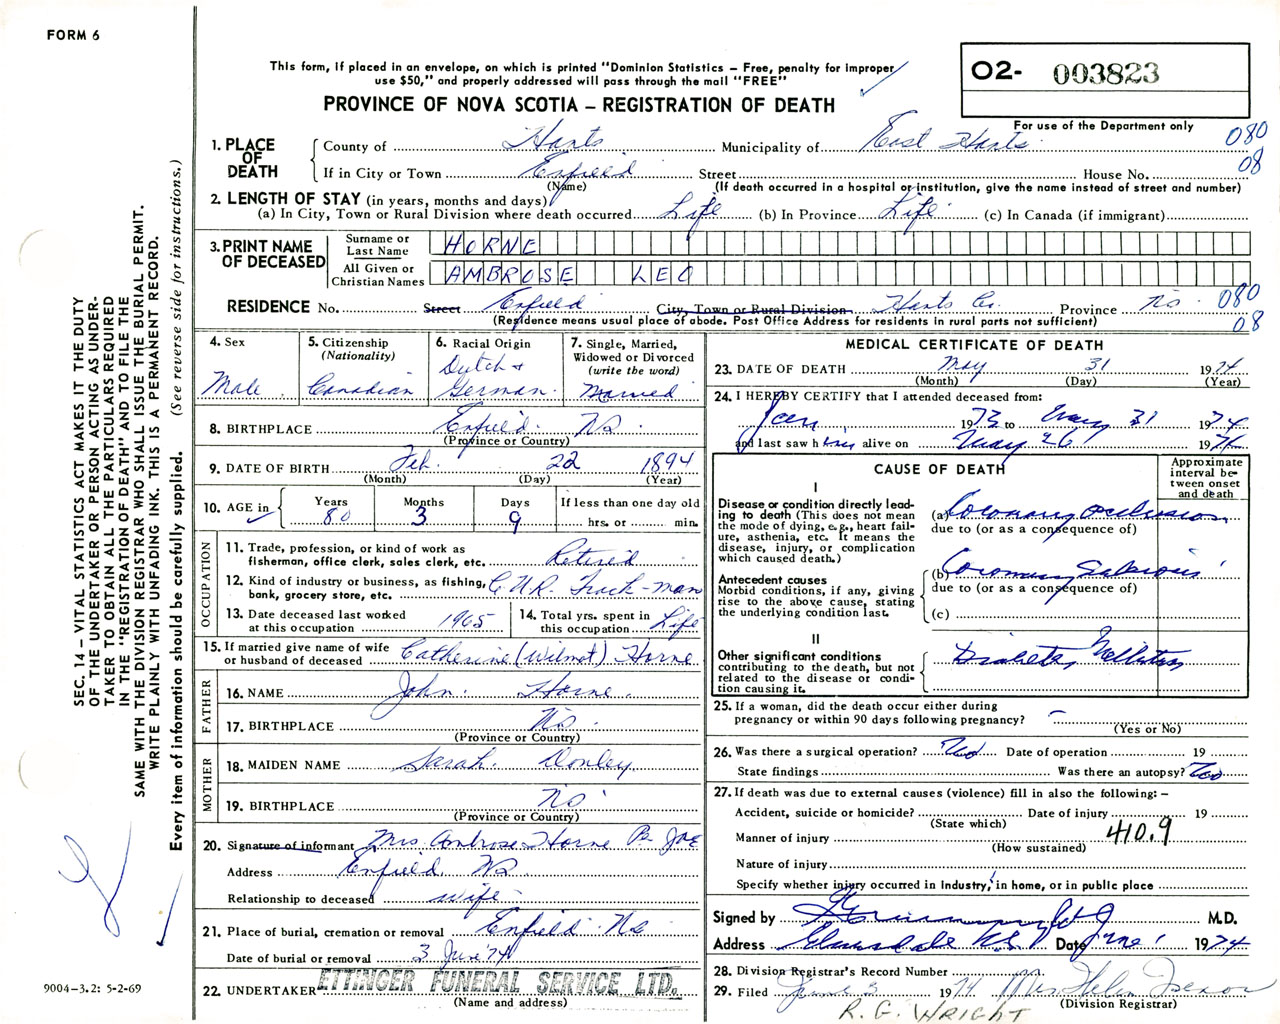 FORM 6
This form, if placed in an envelope, on which is printed "Dominion Statistics – Free, penalty for improper
use $50," and properly addressed will pass through the mail "FREE"
PROVINCE OF NOVA SCOTIA – REGISTRATION OF DEATH
O2- 003823
For use of the Department only
080
08
1. PLACE OF DEATH
County of Hants Municipality of East Hants
If in City or Town Enfield Street House No.
(Name) (If death occurred in a hospital or institution, give the name instead of street and number)
2. LENGTH OF STAY (in years, months and days)
(a) In City, Town or Rural Division where death occurred Life (b) In Province Life (c) In Canada (if immigrant)
3. PRINT NAME OF DECEASED
Surname or Last Name HORNE
All Given or Christian Names AMBROSE LEO
RESIDENCE No. Street Enfield City, Town or Rural Division Hants Co. Province NS 080
08
(Residence means usual place of abode. Post Office Address for residents in rural parts not sufficient)
4. Sex
Male
5. Citizenship
(Nationality)
Canadian
6. Racial Origin
Dutch +
German
7. Single, Married,
Widowed or Divorced
(write the word)
Married
8. BIRTHPLACE Enfield NS
(Province or Country)
9. DATE OF BIRTH Feb. 22 1894
(Month) (Day) (Year)
10. AGE in
Years 80
Months 3
Days 9
If less than one day old
hrs. or min.
OCCUPATION
11. Trade, profession, or kind of work as
fisherman, office clerk, sales clerk, etc. Retired
12. Kind of industry or business, as fishing,
bank, grocery store, etc. C.N.R. Track-man
13. Date deceased last worked
at this occupation 1965
14. Total yrs. spent in
this occupation Life
15. If married give name of wife
or husband of deceased Catherine (Wilmot) Horne
FATHER
16. NAME John Horne
17. BIRTHPLACE NS
(Province or Country)
MOTHER
18. MAIDEN NAME Sarah Donley
19. BIRTHPLACE NS
(Province or Country)
20. Signature of informant Mrs Ambrose Horne Per
Address Enfield NS
Relationship to deceased wife
21. Place of burial, cremation or removal Enfield NS
Date of burial or removal 3 June '74
22. UNDERTAKER ETTINGER FUNERAL SERVICE LTD.
(Name and address)
MEDICAL CERTIFICATE OF DEATH
23. DATE OF DEATH May 31 1974
(Month) (Day) (Year)
24. I HEREBY CERTIFY that I attended deceased from:
Jan 1973 to May 31 1974
and last saw him alive on May 26 1974
CAUSE OF DEATH
Approximate
interval be-
tween onset
and death
I
Disease or condition directly lead-
ing to death (This does not mean
the mode of dying, e.g., heart fail-
ure, asthenia, etc. It means the
disease, injury, or complication
which caused death.)
(a) Coronary Occlusion
due to (or as a consequence of)
Antecedent causes
Morbid conditions, if any, giving
rise to the above cause, stating
the underlying condition last.
(b) Coronary Sclerosis
due to (or as a consequence of)
(c)
II
Other significant conditions
contributing to the death, but not
related to the disease or condi-
tion causing it.
Diabetes Mellitus
25. If a woman, did the death occur either during
pregnancy or within 90 days following pregnancy? –
(Yes or No)
26. Was there a surgical operation? No Date of operation 19
State findings Was there an autopsy? No
27. If death was due to external causes (violence) fill in also the following: –
Accident, suicide or homicide? Date of injury 19
(State which)
Manner of injury 410.9
(How sustained)
Nature of injury
Specify whether injury occurred in industry, in home, or in public place
Signed by M.D.
Address Elmsdale N.S. Date June 1 1974
28. Division Registrar's Record Number
29. Filed June 3 1974 Mrs Helen Isenor
(Division Registrar)
R. G. WRIGHT
SEC. 14 – VITAL STATISTICS ACT MAKES IT THE DUTY
OF THE UNDERTAKER OR PERSON ACTING AS UNDER-
TAKER TO OBTAIN ALL THE PARTICULARS REQUIRED
IN THE "REGISTRATION OF DEATH" AND TO FILE THE
SAME WITH THE DIVISION REGISTRAR WHO SHALL ISSUE THE BURIAL PERMIT.
WRITE PLAINLY WITH UNFADING INK. THIS IS A PERMANENT RECORD.
Every item of information should be carefully supplied. (See reverse side for instructions.)
9004-3.2: 5-2-69